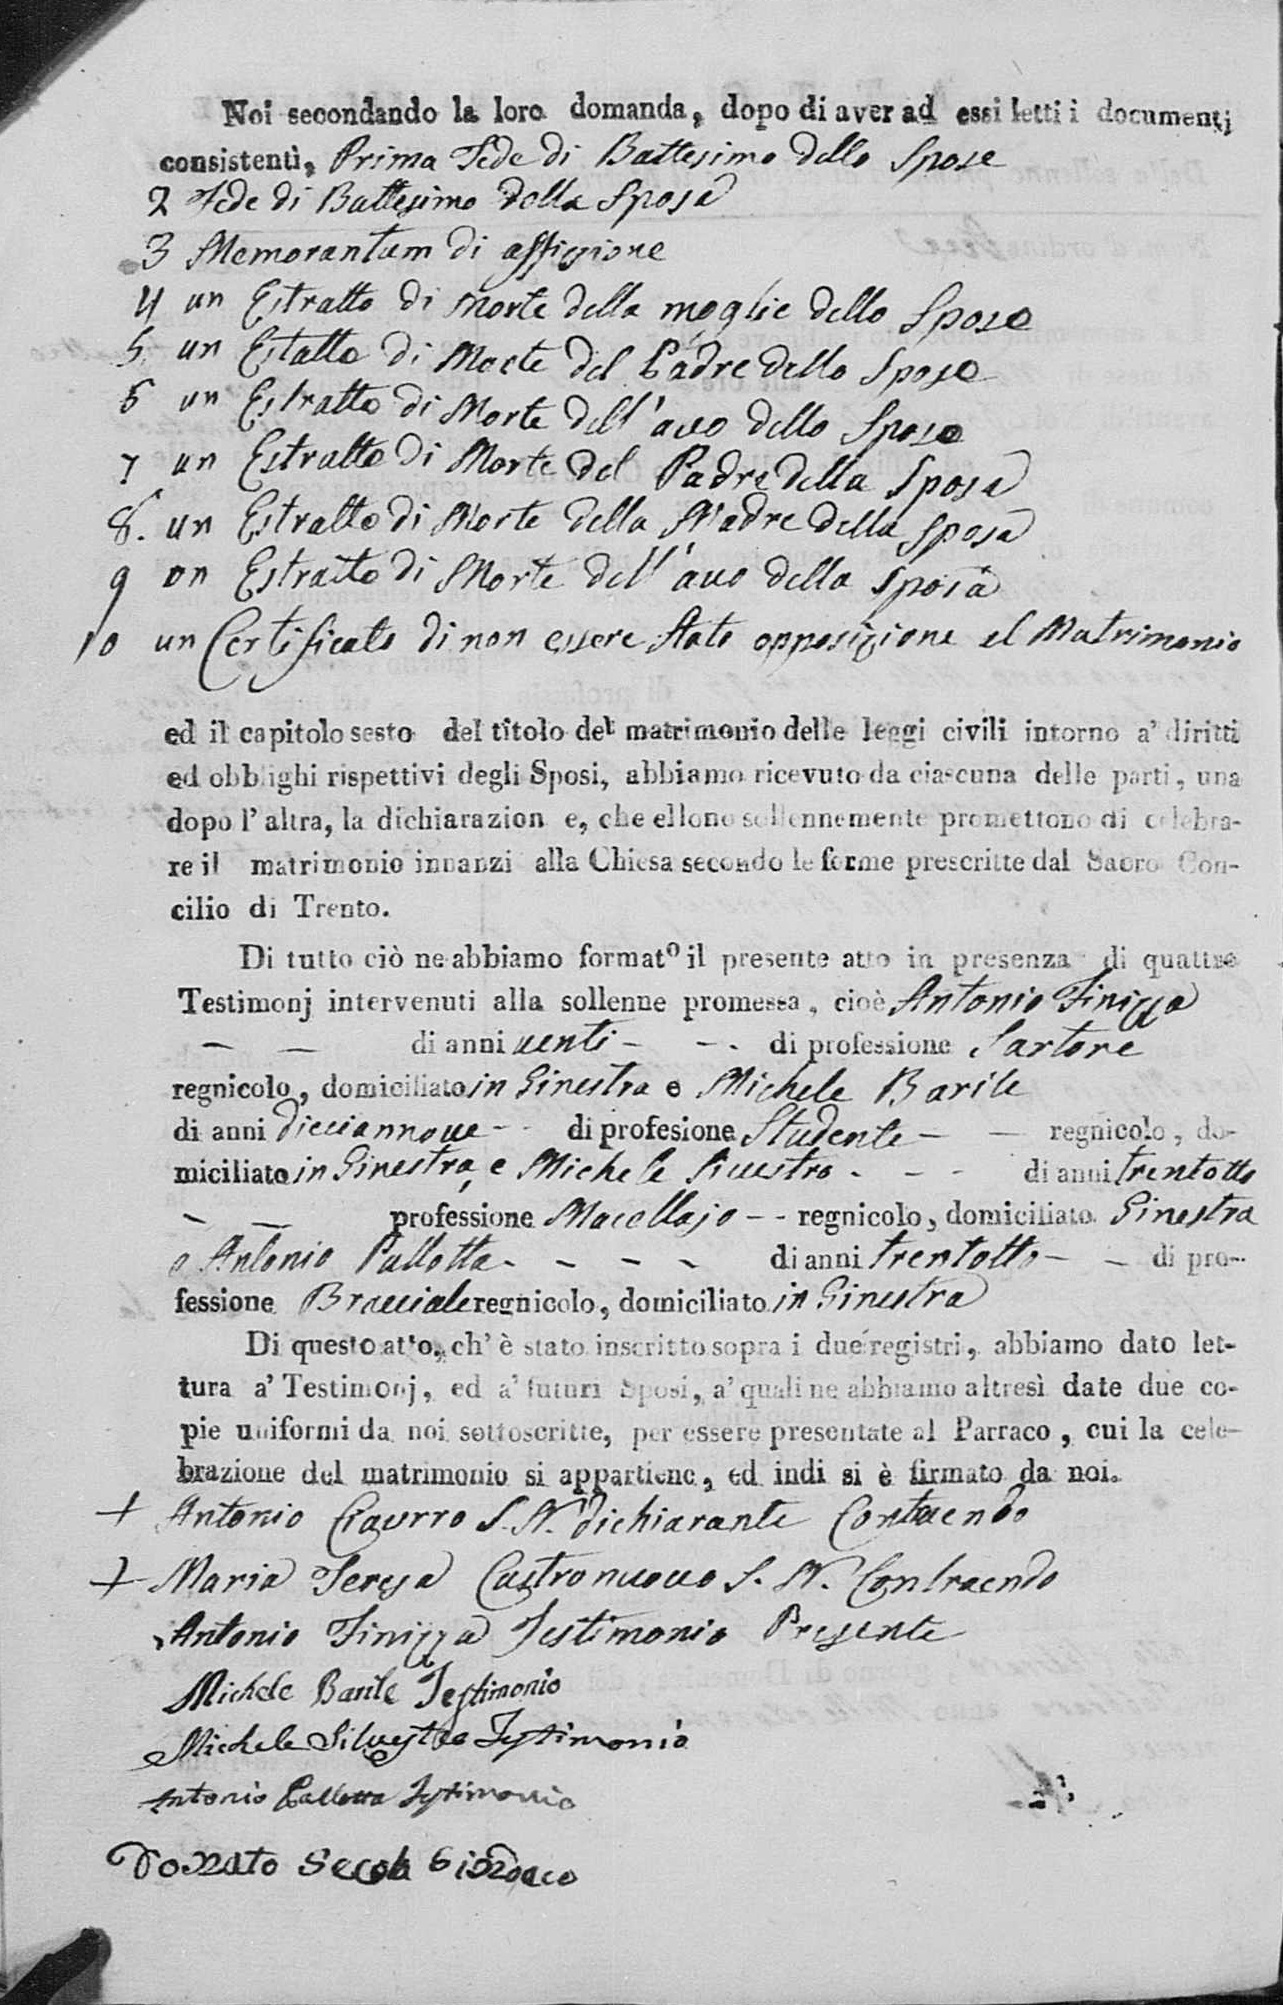 Noi secondando la loro domanda, dopo di aver ad essi letti i documentj
consistenti, Prima Fede di Battesimo dello Spose
2 Fede di Battesimo della Sposa
3 Memorantum di affissione
4 un Estratto di Morte della moglie dello Sposo
5. un Estatto di Morte del Padre dello Sposo
6 un Estratto di Morte dell' avo dello Sposo
7 un Estratto di Morte del Padre della Sposa
8. un Estratto di Morte della Madre della Sposa
9 un Estratto di Morte dell' avo della Sposa
10 un Certificato di non essere stato opposizione al Matrimonio
ed il capitolo sesto del titolo del matrimonio delle leggi civili intorno a' diritti
ed obblighi rispettivi degli Sposi, abbiamo ricevuto da ciascuna delle parti, una
dopo l' altra, la dichiarazion e, che ellono sollennemente promettono di celebra-
re il matrimonio innanzi alla Chiesa secondo le forme prescritte dal Sacro Con-
cilio di Trento.
Di tutto ciò ne abbiamo format° il presente atto in presenza di quattro
Testimonj intervenuti alla sollenne promessa, cioè Antonio Finizza
— — di anni venti - - . di professione Sartore
regnicolo, domiciliato in Ginestra e Michele Barile
di anni dieciannove - - di profesione Studente — — regnicolo, do-
miciliato in Ginestra, e Michele Silvestro - - - di anni trentotto
— — professione Macellajo - - regnicolo, domiciliato Ginestra
e Antonio Pallotta - - - - di anni trentotto — — di pro-
fessione Bracciale regnicolo, domiciliato in Ginestra
Di questo atto, ch' è stato inscritto sopra i due registri, abbiamo dato let-
tura a' Testimonj, ed a' futuri Sposi, a' quali ne abbiamo altresì date due co-
pie uniformi da noi sottoscritte, per essere presentate al Parraco, cui la cele-
brazione del matrimonio si appartiene, ed indi si è firmato da noi.
+ Antonio Ciaurro S. N. dichiarante Contraendo
+ Maria Teresa Castronuovo S. N. Contraendo
Antonio Finizza Testimonio Presente
Michele Barile Testimonio
Michele Silvestro Testimonio
Antonio Pallotta Testimonio
Donato Secola Sindaco